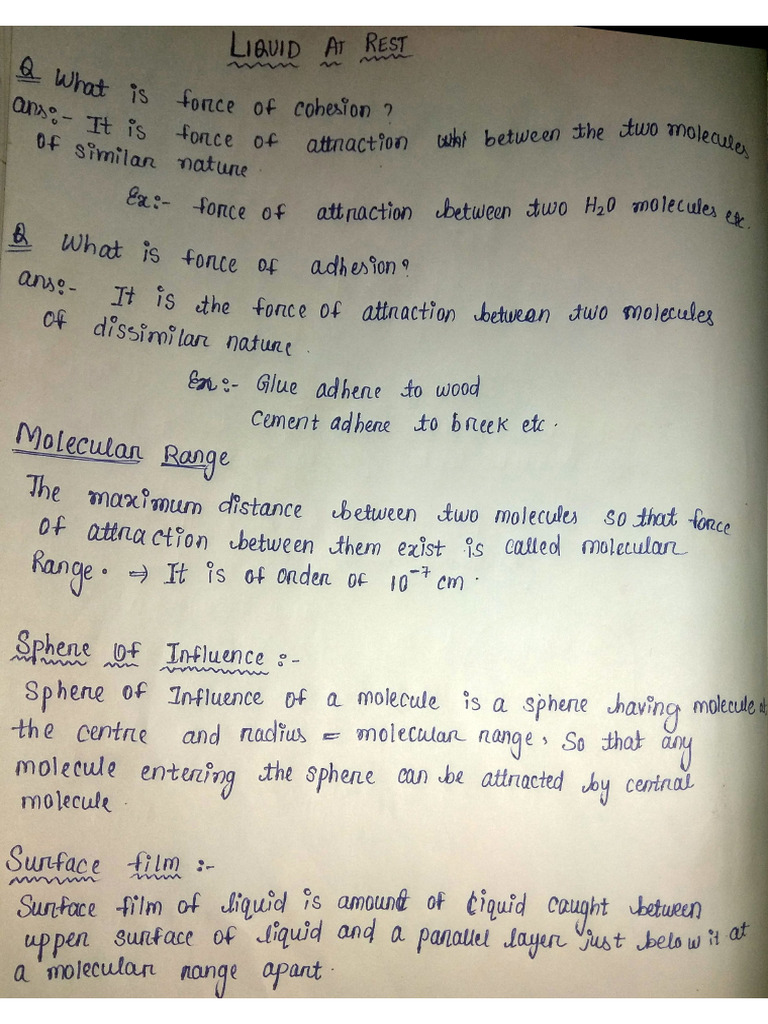 LIQUID AT REST
Q What is force of cohesion?
ans:- It is force of attraction whi between the two molecules
of similar nature.
Ex:- force of attraction between two H₂O molecules etc.
Q What is force of adhesion?
ans:- It is the force of attraction between two molecules
of dissimilar nature.
Ex:- Glue adhere to wood
Cement adhere to breek etc.
Molecular Range
The maximum distance between two molecules so that force
of attraction between them exist is called molecular
Range. → It is of order of 10⁻⁷ cm.
Sphere of Influence:-
Sphere of Influence of a molecule is a sphere having molecule at
the centre and radius = molecular range, So that any
molecule entering the sphere can be attracted by central
molecule.
Surface film:-
Surface film of liquid is amount of liquid caught between
upper surface of liquid and a parallel layer just below it at
a molecular range apart.